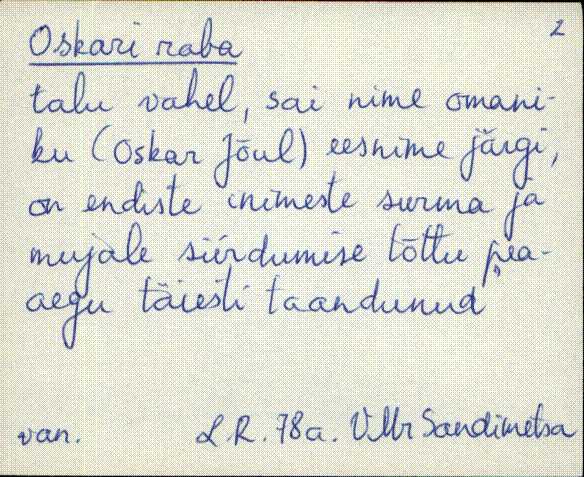 2
Oskari raba
talu vahel, sai nime omani-
ku (Oskar Jõul) eesnime järgi,
on endiste inimeste surma ja
mujale siirdumise tõttu pea-
aegu täiesti taandunud
van. L.R. 78a. VMr Sandimetsa